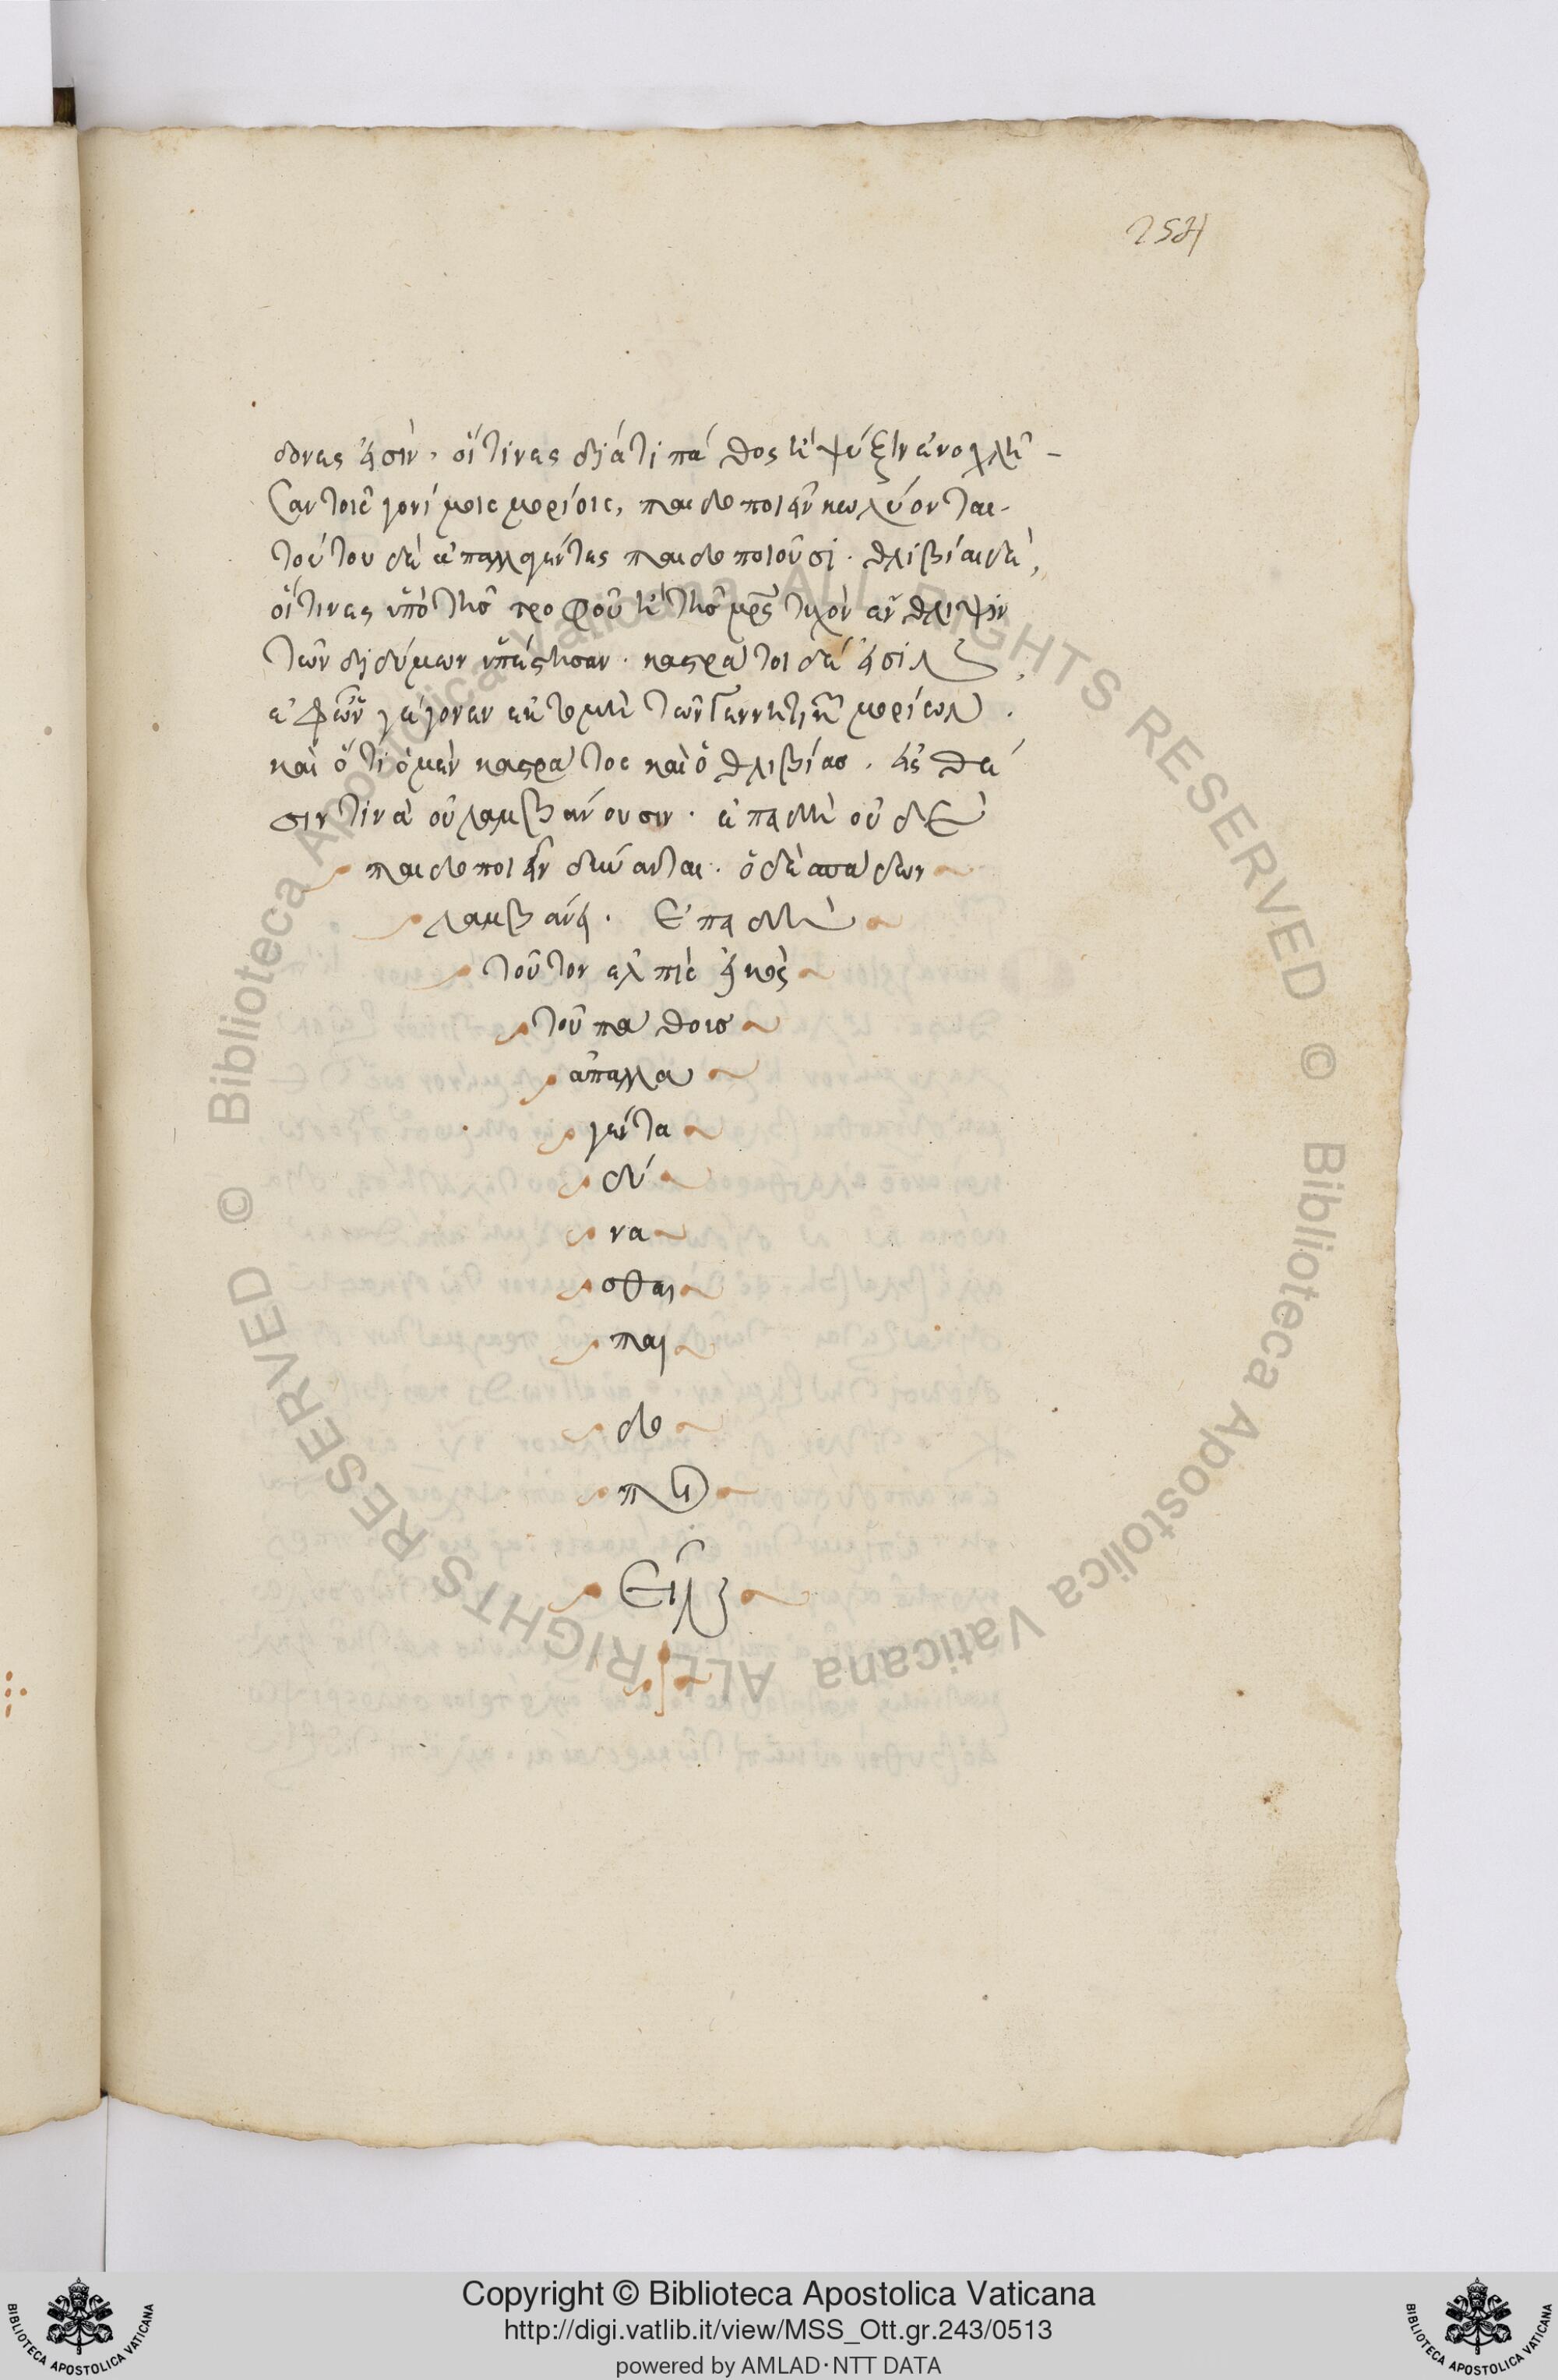 254
δονες εἰσὶν. οἵτινες διά τι πάθος ἢ ψύξιν ἐνοχλῆ-
σαν τοῖς γονίμοις μορίοις, παιδοποιεῖν κωλύονται.
τούτου δὲ ἀπαλλαγέντες παιδοποιοῦσι. θλιβίαι δὲ,
οἵτινες ὑπὸ τῆς τροφοῦ ἢ τῆς μρς τυχὸν ἐν θλῖψιν
τῶν διδύμων ὑπέστησαν. καστράτοι δέ εἰσιν,
ἐφ' ὧν γέγονεν ἐκτομὴ τῶν γεννητικῶν μορίων.
καὶ ὅτι ὁ μὲν καστράτος καὶ ὁ θλιβίας. εἰς θέ
σιν τινὰ οὐ λαμβάνουσιν. ἐπειδὴ οὐδὲ
παιδοποιεῖν δύνανται. ὁ δὲ σπάδων
λαμβάνει. Ἐπειδὴ
τοῦτον ἐλπὶς εἰκὸς
τοῦ πάθους
ἀπαλλα
γέντα
δύ
να
σθαι
παι
δο
ποι
εῖν
Copyright © Biblioteca Apostolica Vaticana
http://digi.vatlib.it/view/MSS_Ott.gr.243/0513
powered by AMLAD·NTT DATA
BIBLIOTECA APOSTOLICA VATICANA
BIBLIOTECA APOSTOLICA VATICANA
© Biblioteca Apostolica Vaticana ALL RIGHTS RESERVED © Biblioteca Apostolica Vaticana ALL RIGHTS RESERVED